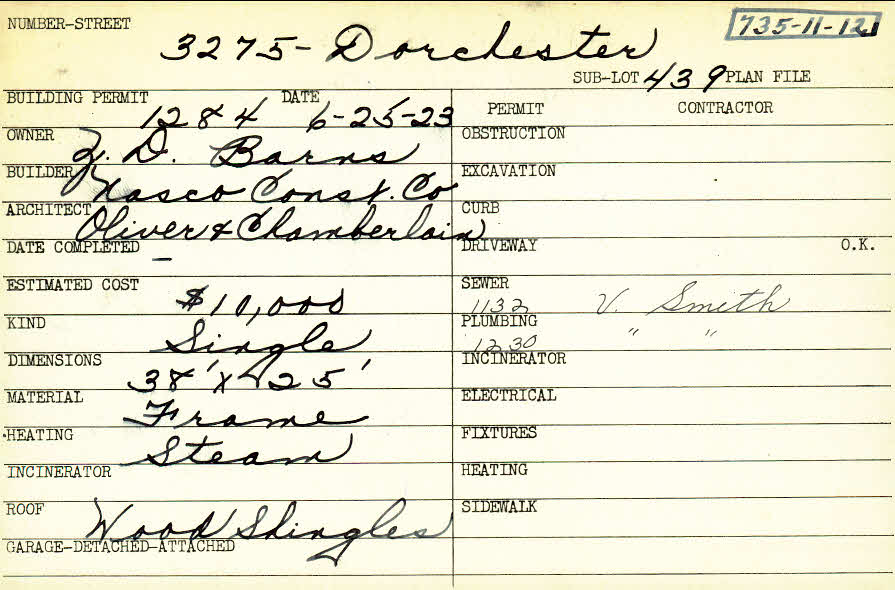 NUMBER-STREET 3275- Dorchester 735-11-121
SUB-LOT 439 PLAN FILE
BUILDING PERMIT 1284 DATE 6-25-23
PERMIT CONTRACTOR
OWNER Z. D. Barns
OBSTRUCTION
BUILDER Nasco Const. Co
EXCAVATION
ARCHITECT Oliver & Chamberlain
CURB
DATE COMPLETED –
DRIVEWAY O.K.
ESTIMATED COST $10,000
SEWER 1132 V. Smith
KIND Single
PLUMBING 1230 " "
DIMENSIONS 38' x 25'
INCINERATOR
MATERIAL Frame
ELECTRICAL
HEATING Steam
FIXTURES
INCINERATOR
HEATING
ROOF Wood Shingles
SIDEWALK
GARAGE-DETACHED-ATTACHED